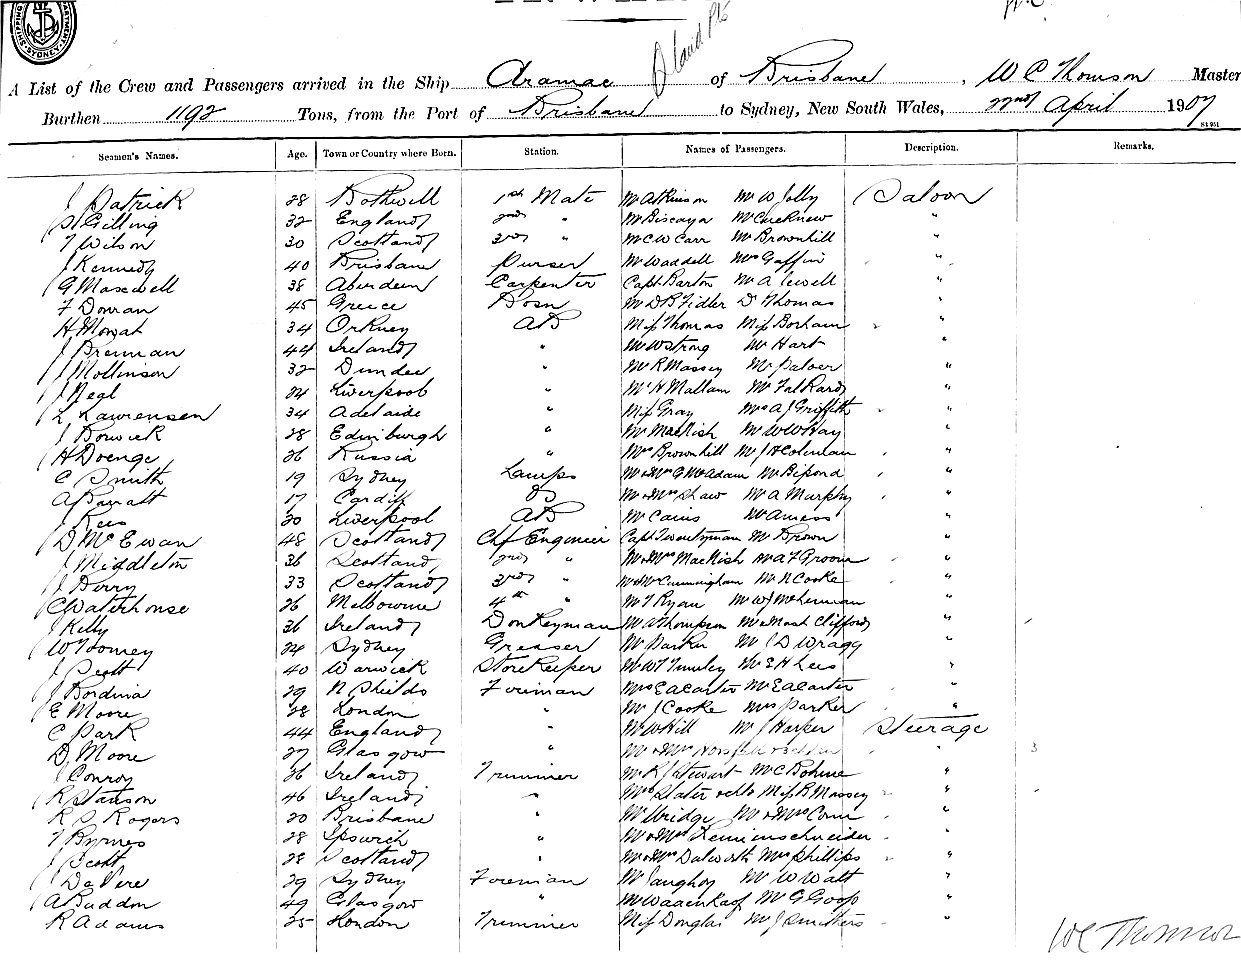 SYDNEY
A List of the Crew and Passengers arrived in the Ship Aramac of Brisbane, W C Thomson Master
Burthen 1192 Tons, from the Port of Brisbane to Sydney, New South Wales, 22nd April 1907
Seamen's Names. Age. Town or Country where Born. Station. Names of Passengers. Description. Remarks.
J Patrick 28 Bothwell 1st Mate Mr Atkinson Mr W Jolly Saloon
S Gilling 32 England 2nd " Mr Biscaya "
T Wilson 30 Scotland 3rd " Mr C W Carr Mr Brownhill "
J Kennedy 40 Brisbane Purser Mr Waddell Mrs Gaffin "
G Maxwell 38 Aberdeen Carpenter Capt Barton Mr A Jewell "
F Donran 45 Greece Bosn Mr D B Fidler Dr Thomas "
H Mowat 34 Orkney AB Miss Thomas Miss Borham "
J Brennan 44 Ireland " Mr W Strong Mr Hart "
J Mollinson 32 Dundee " Mr R Massey Mr "
J Neal 24 Liverpool " Mr H Mallam Mr "
L Lawrensen 34 Adelaide " Miss Gray Mrs A J Griffith "
J Borwick 28 Edinburgh " Mr MacNish Mr W W Hay "
H Doenge 26 Russia " Mrs Brownhill Mr J H Coleman "
C Smith 19 Sydney Lamps Mr & Mrs G McAdam Mr "
A Barratt 17 Cardiff OS Mr & Mrs Shaw Mr A Murphy "
J Rees 20 Liverpool AB Mr Cairns Mr Amess "
D McEwan 48 Scotland Chf Engineer Capt Twentyman Mr Brown "
J Middleton 36 Scotland 2nd " Mr & Mrs MacNish Mr A F Groom "
J Berry 33 Scotland 3rd " Mr & Mrs Cunningham Mr N Cooke "
C Waterhouse 26 Melbourne 4th " Mr T Ryan Mr W J "
J Kelly 36 Ireland Donkeyman Mr A Thompson Clifford "
W Toomey 24 Sydney Greaser Mr Parker Mr C D Wragg "
J Scott 40 Warwick Storekeeper Mr W T Mr E H Lees "
J Bordinia 29 N Shields Foreman Mrs E A Carter Mr E A Carter "
E Moore 28 London " Mr J Cooke Mrs Parker "
C Park 44 England " Mr W Hill Mr J Harper Steerage
D Moore 27 Glasgow " Mr & Mrs "
J Conroy 26 Ireland Trimmer Mr R J Stewart Mr C Bohme "
R Stanson 46 Ireland " Mrs Slater Miss R Massey "
R S Rogers 20 Brisbane " Mr & Mrs "
T Byrnes 28 Ipswich " Mr & Mrs Remienschneider "
J Scott 28 Scotland " Mr & Mrs Dalworth Mrs Phillips "
J DaVere 29 Sydney Foreman Mr Mr W Watt "
A Buddon 49 Glasgow " Mr Mr G Goop "
R Adams 25 London Trimmer Miss Douglas Mr J Smithers "
W C Thomson